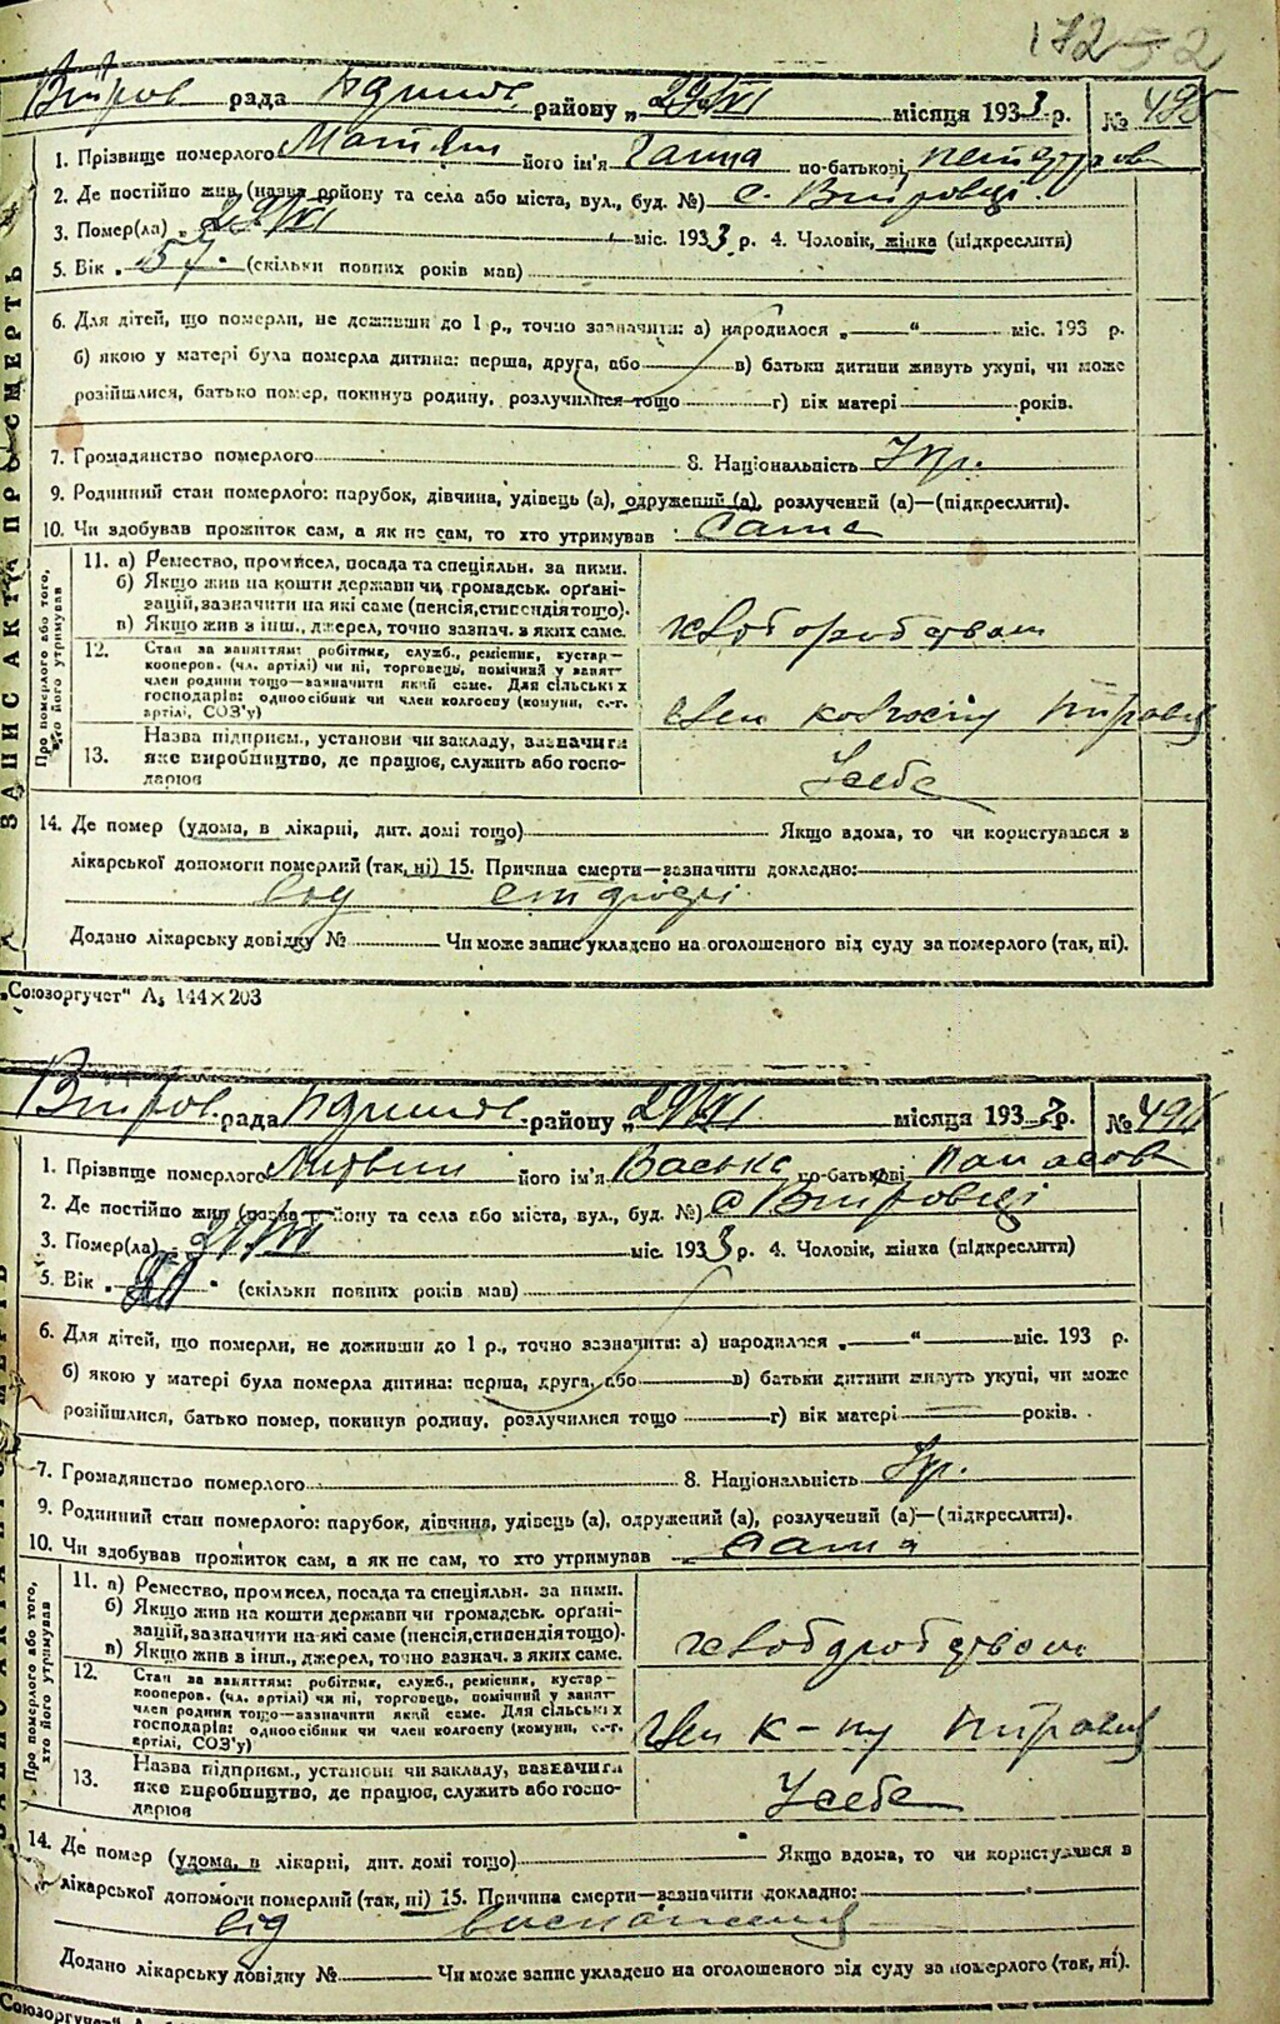 172
Вітров рада района „29/VI місяця 1933 р. № 495
1. Прізвище померлого його ім'я Ганна по-батькові
2. Де постійно жив (назва району та села або міста, вул., буд. №) с. Вітровці.
3. Помер(ла) „ 29/VI міс. 1933 р. 4. Чоловік, жінка (підкреслити)
5. Вік „57" (скільки повних років мав)
6. Для дітей, що померли, не доживши до 1 р., точно зазначити: а) народилося „ “ міс. 193 р.
б) якою у матері була померла дитина: перша, друга, або в) батьки дитини живуть укупі, чи може
розійшлися, батько помер, покинув родину, розлучилися тощо г) вік матері років.
7. Громадянство померлого 8. Національність Укр.
9. Родинний стан померлого: парубок, дівчина, удівець (а), одружений (а), розлучений (а)—(підкреслити).
10. Чи здобував прожиток сам, а як не сам, то хто утримував сама
ЗАПИС АКТА ПРО СМЕРТЬ
Про померлого або того, хто його утримував
11. а) Ремество, промисел, посада та спеціяльн. за ними.
б) Якщо жив на кошти держави чи громадськ. органі-
зацій, зазначити на які саме (пенсія, стипендія тощо).
в) Якщо жив з інш., джерел, точно зазнач. з яких саме.
хлоборобством
12. Стан за заняттям: робітник, служб., ремісник, кустар—
кооперов. (чл. артілі) чи ні, торговець, помічний у занят—
член родини тощо—зазначити який саме. Для сільських
господарів: одноосібник чи член колгоспу (комуни, с.-г.
артілі, СОЗ'у)
член колгоспу
13. Назва підприєм., установи чи закладу, зазначити
яке виробництво, де працює, служить або госпо-
дарює
У себе
14. Де помер (удома, в лікарні, дит. домі тощо) Якщо вдома, то чи користувався з
лікарської допомоги померлий (так, ні) 15. Причина смерти—зазначити докладно:
від старості
Додано лікарську довідку № Чи може запис укладено на оголошеного від суду за померлого (так, ні).
„Союзоргучет“ А₅ 144×203
Вітров. рада району „29/VI місяця 1933 р. №
1. Прізвище померлого Литвин його ім'я Васька по-батькові Панасов
2. Де постійно жив (назва району та села або міста, вул., буд. №) с Вітровці
3. Помер(ла) „ 29/VI міс. 1933 р. 4. Чоловік, жінка (підкреслити)
5. Вік „ " (скільки повних років мав)
6. Для дітей, що померли, не доживши до 1 р., точно зазначити: а) народилося „ “ міс. 193 р.
б) якою у матері була померла дитина: перша, друга, або в) батьки дитини живуть укупі, чи може
розійшлися, батько помер, покинув родину, розлучилися тощо г) вік матері років.
7. Громадянство померлого 8. Національність Укр.
9. Родинний стан померлого: парубок, дівчина, удівець (а), одружений (а), розлучений (а)—(підкреслити).
10. Чи здобував прожиток сам, а як не сам, то хто утримував сама
Про померлого або того, хто його утримував
11. а) Ремество, промисел, посада та спеціяльн. за ними.
б) Якщо жив на кошти держави чи громадськ. органі-
зацій, зазначити на які саме (пенсія, стипендія тощо).
в) Якщо жив з інш., джерел, точно зазнач. в яких саме.
хлоборобством
12. Стан за заняттям: робітник, служб., ремісник, кустар—
кооперов. (чл. артілі) чи ні, торговець, помічний у занят—
член родини тощо—зазначити який саме. Для сільських
господарів: одноосібник чи член колгоспу (комуни, с.-г.
артілі, СОЗ'у)
член к-пу
13. Назва підприєм., установи чи закладу, зазначити
яке виробництво, де працює, служить або госпо-
дарює
У себе
14. Де помер (удома, в лікарні, дит. домі тощо) Якщо вдома, то чи користувався в
лікарської допомоги померлий (так, ні) 15. Причина смерти—зазначити докладно:
від виснаження
Додано лікарську довідку № Чи може запис укладено на оголошеного від суду за померлого (так, ні).
Союзоргучет“